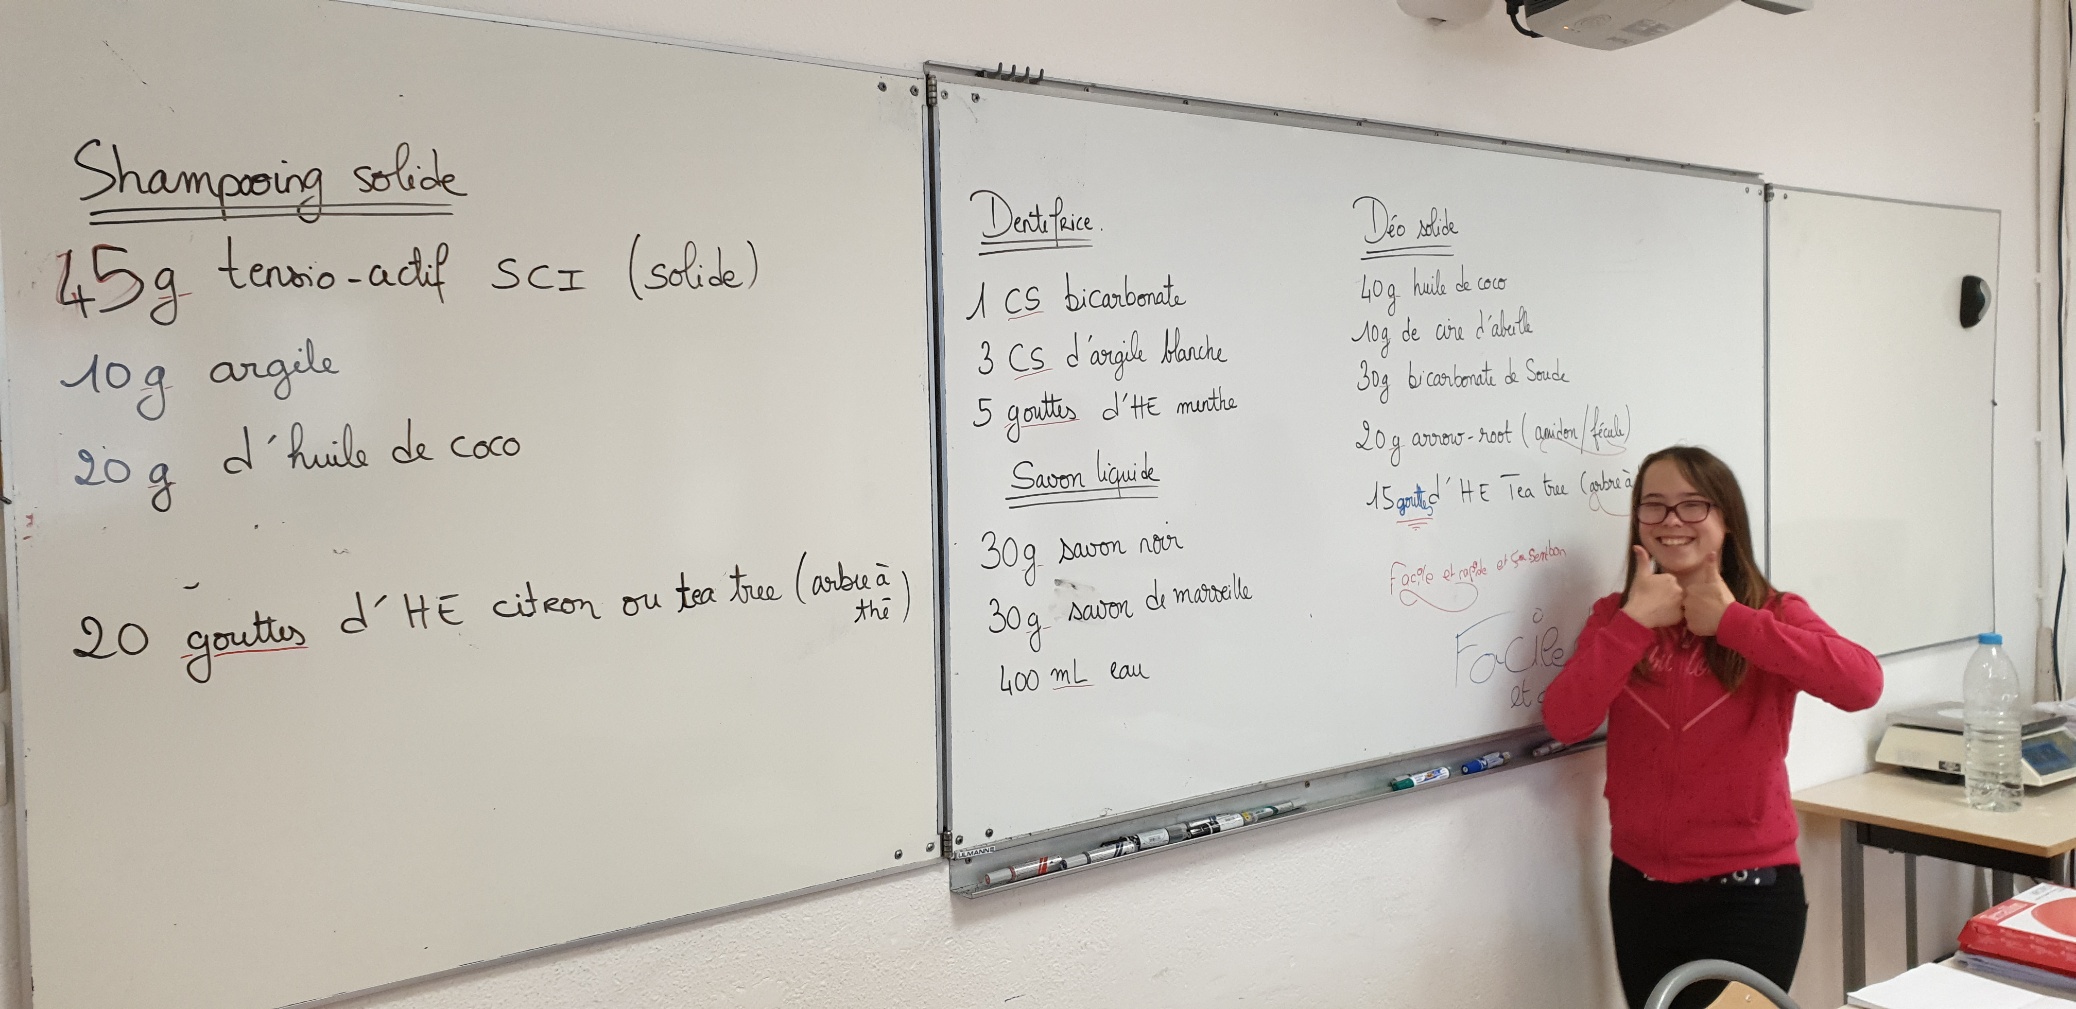 Shampooing solide
45g tensio-actif SCI (solide)
10g argile
20g d'huile de coco
20 gouttes d'HE citron ou tea tree (arbre à thé)
Dentifrice.
1 CS bicarbonate
3 CS d'argile blanche
5 gouttes d'HE menthe
Savon liquide
30g savon noir
30g savon de marseille
400 mL eau
Déo solide
40g huile de coco
10g de cire d'abeille
30g bicarbonate de Soude
20g arrow-root (amidon/fécule)
15 gouttes d'HE Tea tree (arbre à
Facile et rapide et ça sent bon
Facile
et
ULMANN